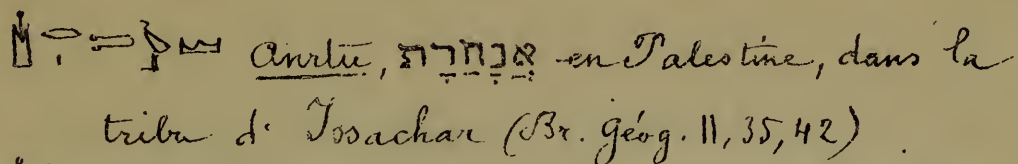 Anrtu, אֲנָחֲרַת en Palestine, dans la
tribu d'Issachar (Br. Géog. II, 35, 42).